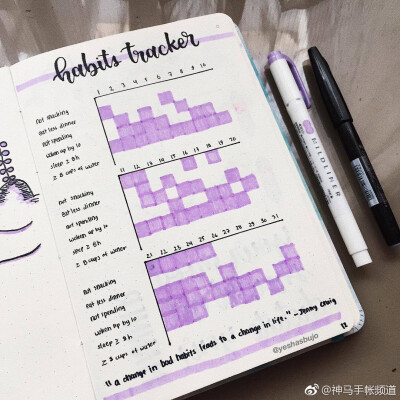 habits tracker
1 2 3 4 5 6 7 8 9 10
not snacking
eat less dinner
not spending
woken up by 10
sleep ≥ 8h
≥ 8 cups of water
11 12 13 14 15 16 17 18 19 20
not snacking
eat less dinner
not spending
woken up by 10
sleep ≥ 8h
≥ 8 cups of water
21 22 23 24 25 26 27 28 29 30 31
not snacking
eat less dinner
not spending
woken up by 10
sleep ≥ 8h
≥ 8 cups of water
"a change in bad habits leads to a change in life." -Jenny Craig
12
@yeshasbujo
MILDLINER
@神马手帐频道